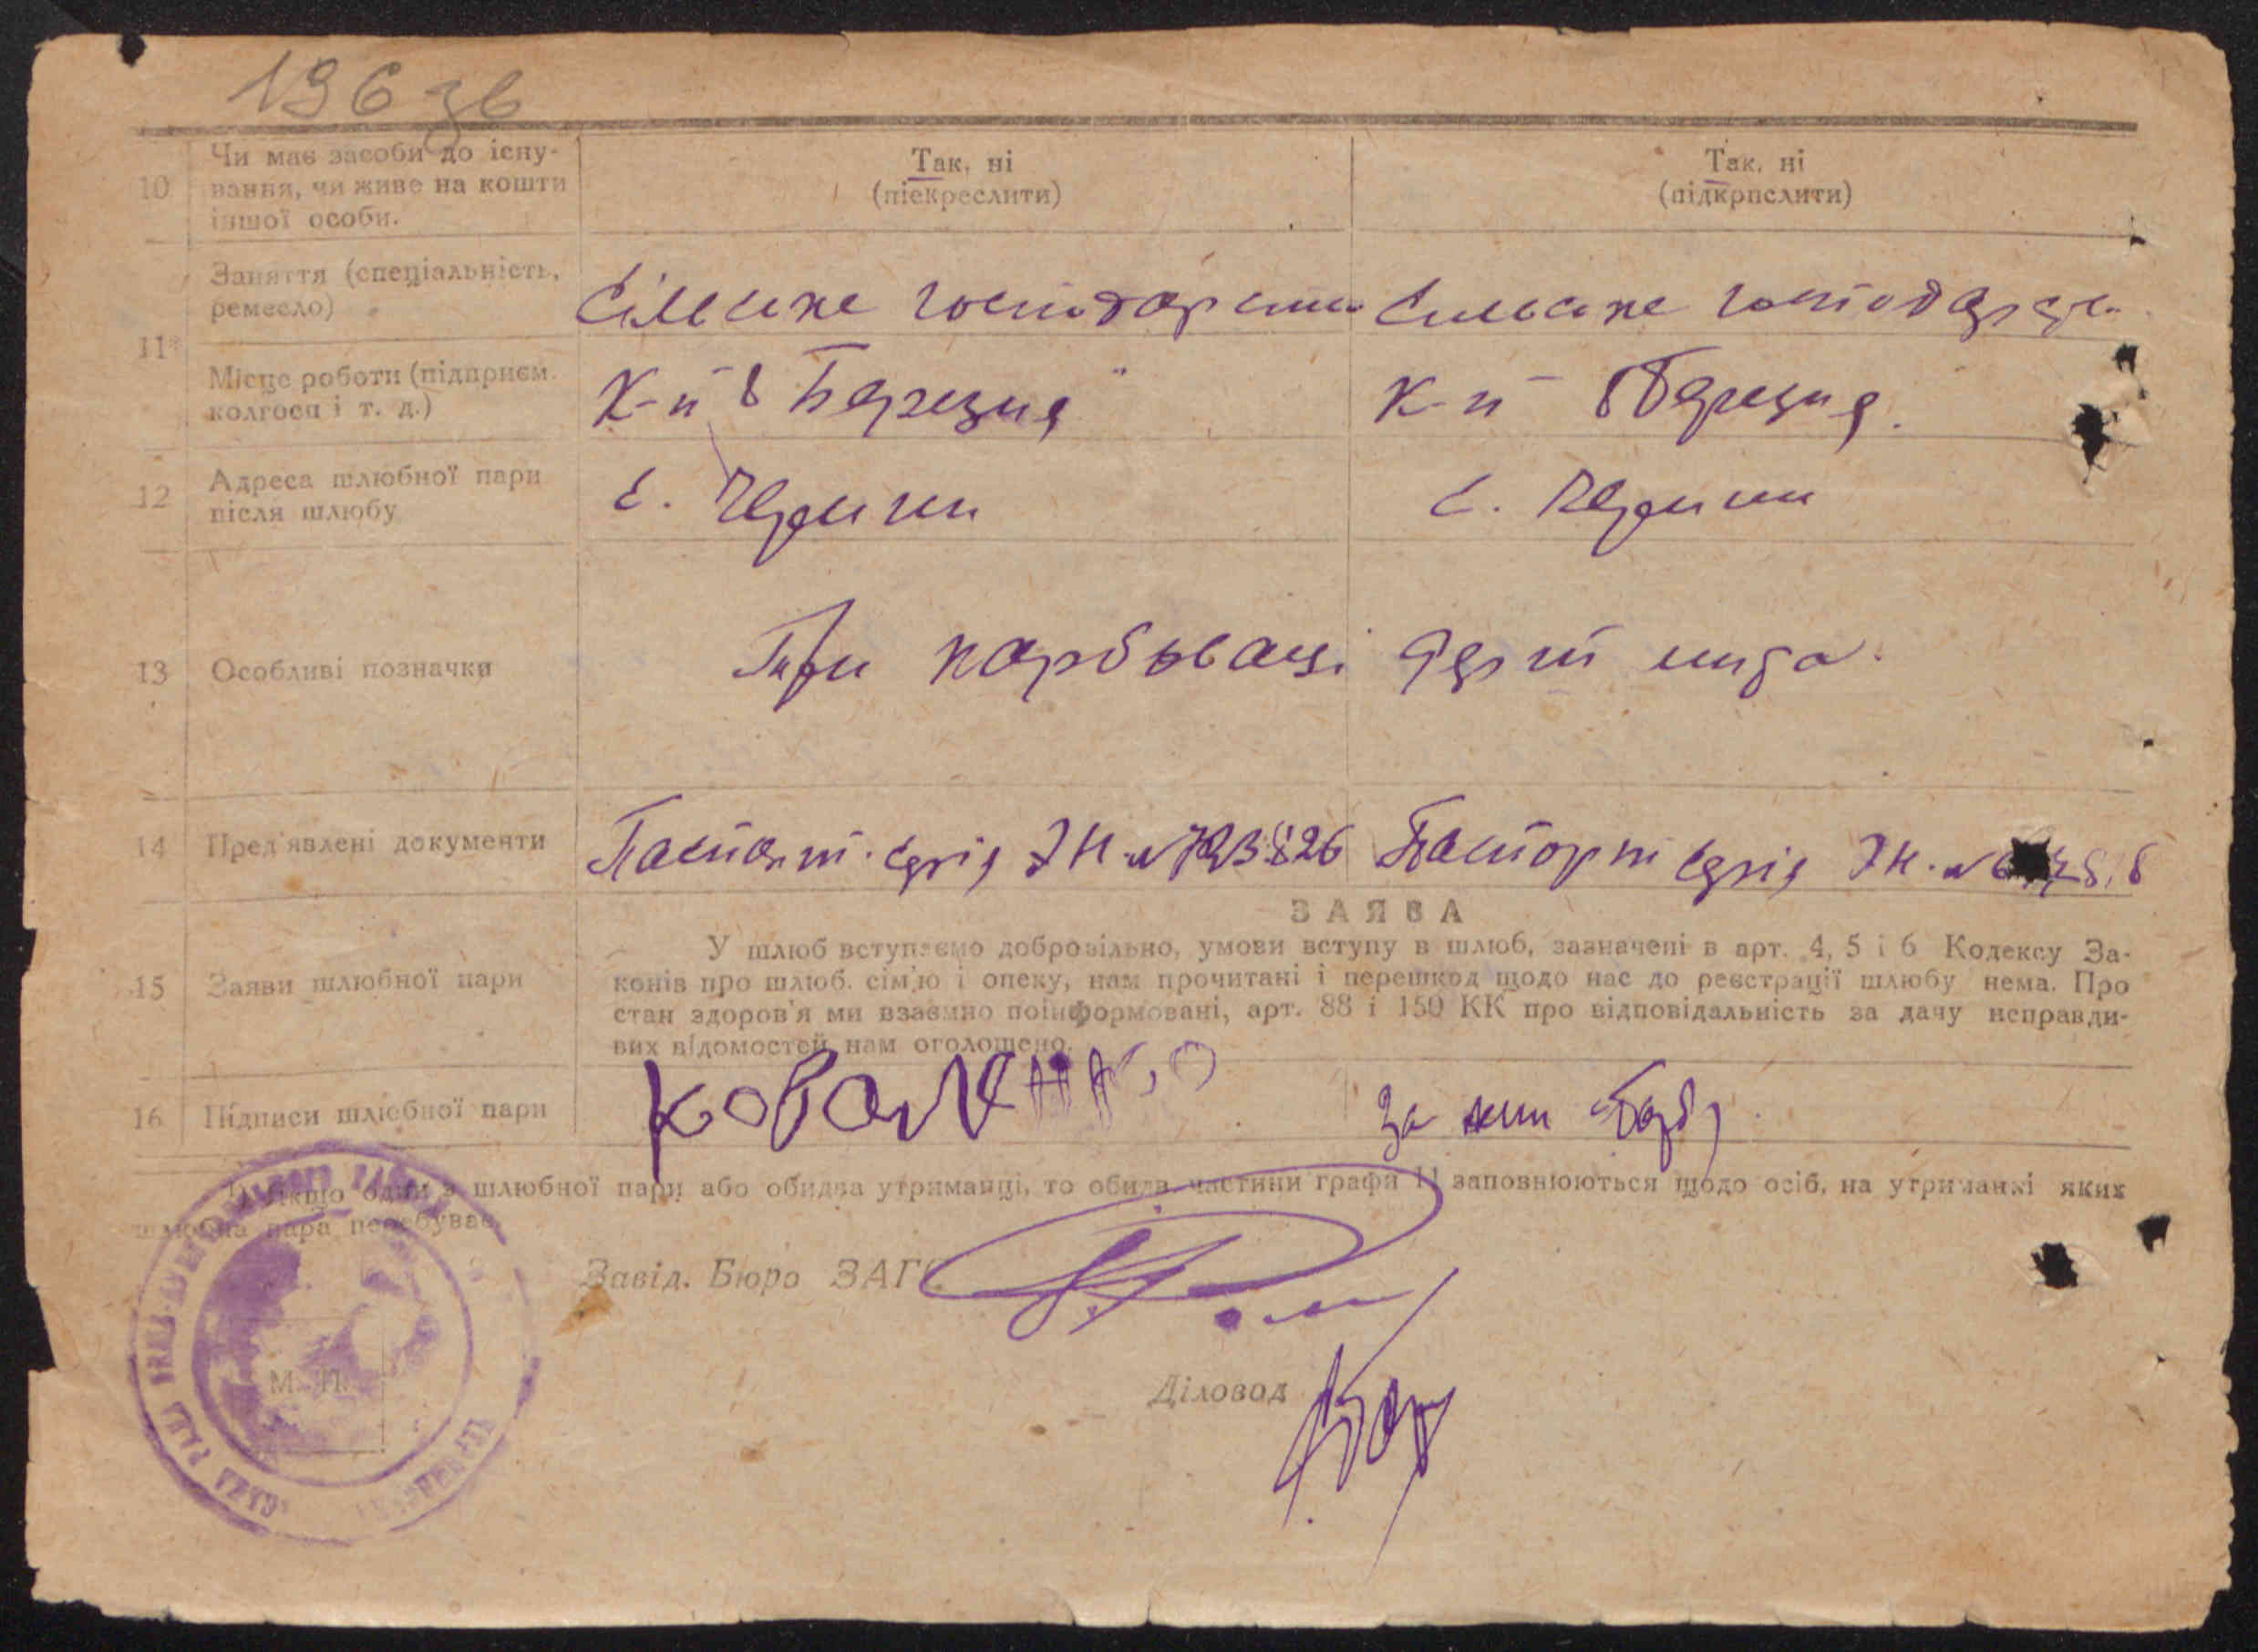 196 зв
10 Чи має засоби до існу-
вання, чи живе на кошти
іншої особи.
Так, ні
(піекреслити)
Так, ні
(підкрпслити)
11*
Заняття (спеціальність,
ремесло)
Сільське господарство Сильське господарст.
Місце роботи (підприєм.
колгосп і т. д.)
К-п 8 Березня
К-п 8 Березня.
12 Адреса шлюбної пари
після шлюбу
с.
с.
13 Особливі позначки
При карбованці
14 Пред'явлені документи
Паспорт серія ЭН. № Паспорт серія ЭН. №
ЗАЯВА
15 Заяви шлюбної пари
У шлюб вступаємо добровільно, умови вступу в шлюб, зазначені в арт. 4, 5 і 6 Кодексу За-
конів про шлюб. сім'ю і опеку, нам прочитані і перешкод щодо нас до реєстрації шлюбу нема. Про
стан здоров'я ми взаємно поінформовані, арт. 88 і 150 КК про відповідальність за дачу неправди-
вих відомостей нам оголошено.
16 Підписи шлюбної пари
Коваленко
за
*) Якщо один з шлюбної пари або обидва утриманці, то обидв. частини графи 11 заповнюються щодо осіб, на утриманні яких
шлюбна пара перебуває.
Завід. Бюро ЗАГС
М. П.
Діловод